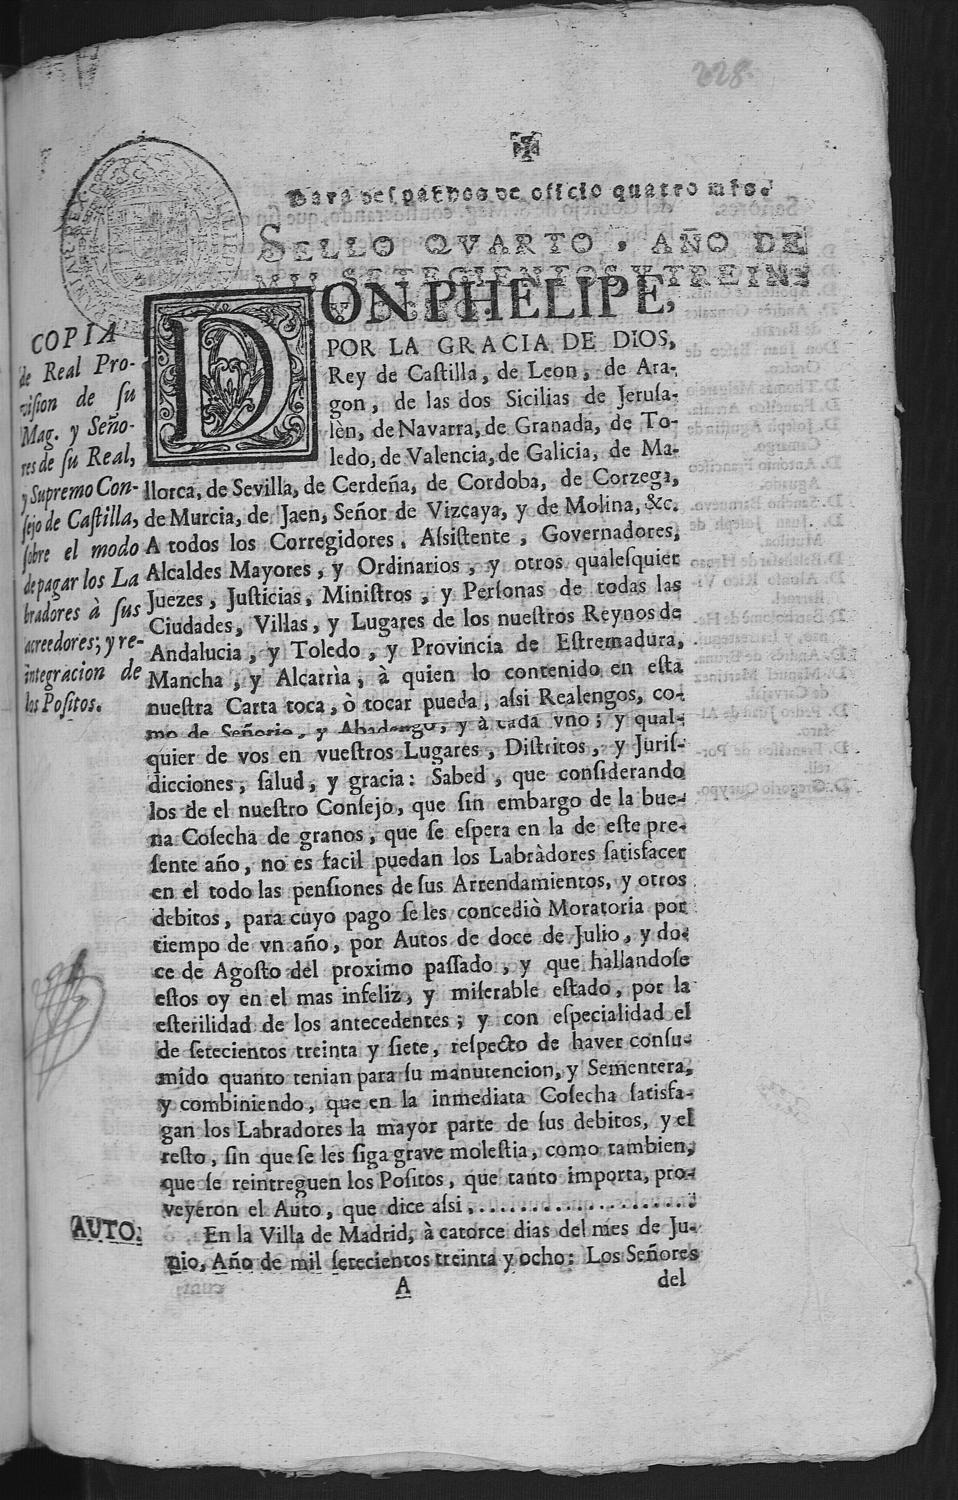 228.
Para despachos de oficio quatro mrs.
SELLO QVARTO, AÑO DE
MIL SETECIENTOS Y TREIN-
COPIA
de Real Pro-
vision de su
Mag. y Seño-
res de su Real,
y Supremo Con-
sejo de Castilla,
sobre el modo
de pagar los La
bradores à sus
acreedores; y re-
integracion de
los Positos.
DON PHELIPE,
POR LA GRACIA DE DIOS,
Rey de Castilla, de Leon, de Ara-
gon, de las dos Sicilias de Jerusa-
lèn, de Navarra, de Granada, de To-
ledo, de Valencia, de Galicia, de Ma-
llorca, de Sevilla, de Cerdeña, de Cordoba, de Corzega,
de Murcia, de Jaen, Señor de Vizcaya, y de Molina, &c.
A todos los Corregidores, Assistente, Governadores,
Alcaldes Mayores, y Ordinarios, y otros qualesquier
Juezes, Justicias, Ministros, y Personas de todas las
Ciudades, Villas, y Lugares de los nuestros Reynos de
Andalucia, y Toledo, y Provincia de Estremadura,
Mancha, y Alcarrìa, à quien lo contenido en esta
nuestra Carta toca, ò tocar pueda, assi Realengos, co-
mo de Señorio, y Abadengo, y à cada vno; y qual-
quier de vos en vuestros Lugares, Distritos, y Juris-
dicciones, salud, y gracia: Sabed, que considerando
los de el nuestro Consejo, que sin embargo de la bue-
na Cosecha de granos, que se espera en la de este pre-
sente año, no es facil puedan los Labràdores satisfacer
en el todo las pensiones de sus Arrendamientos, y otros
debitos, para cuyo pago se les concediò Moratoria por
tiempo de vn año, por Autos de doce de Julio, y do-
ce de Agosto del proximo passado, y que hallandose
estos oy en el mas infeliz, y miserable estado, por la
esterilidad de los antecedentes; y con especialidad el
de setecientos treinta y siete, respecto de haver consu-
mido quanto tenian para su manutencion, y Sementera,
y combiniendo, que en la inmediata Cosecha satisfa-
gan los Labradores la mayor parte de sus debitos, y el
resto, sin que se les siga grave molestia, como tambien,
que se reintreguen los Positos, que tanto importa, pro-
veyeron el Auto, que dice assi,....................
AUTO.
En la Villa de Madrid, à catorce dias del mes de Ju-
nio, Año de mil setecientos treinta y ocho: Los Señores
A
del